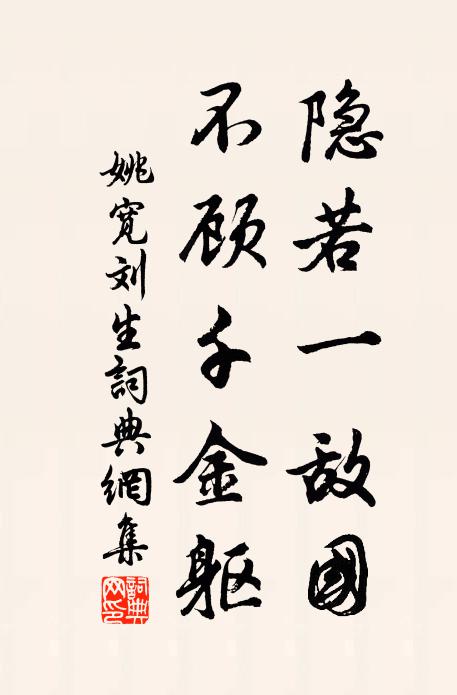 隐若一敌國
不顾千金躯
姚寬刘生詞典網集
詞典网印